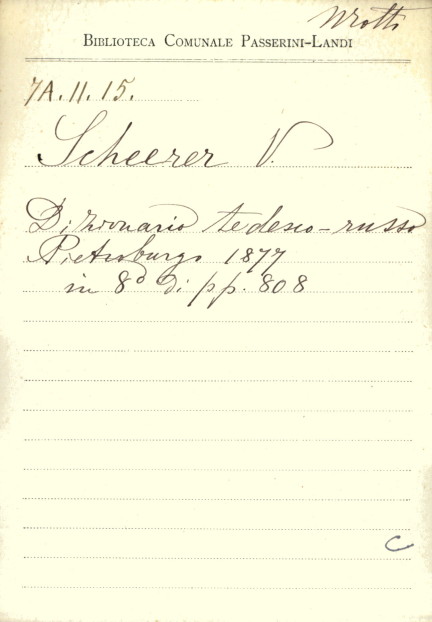 BIBLIOTECA COMUNALE PASSERINI-LANDI
7A.11.15.
Scheerer V.
Dizionario tedesco-russo
Pietroburgo 1877
in 8º di pp. 808
C